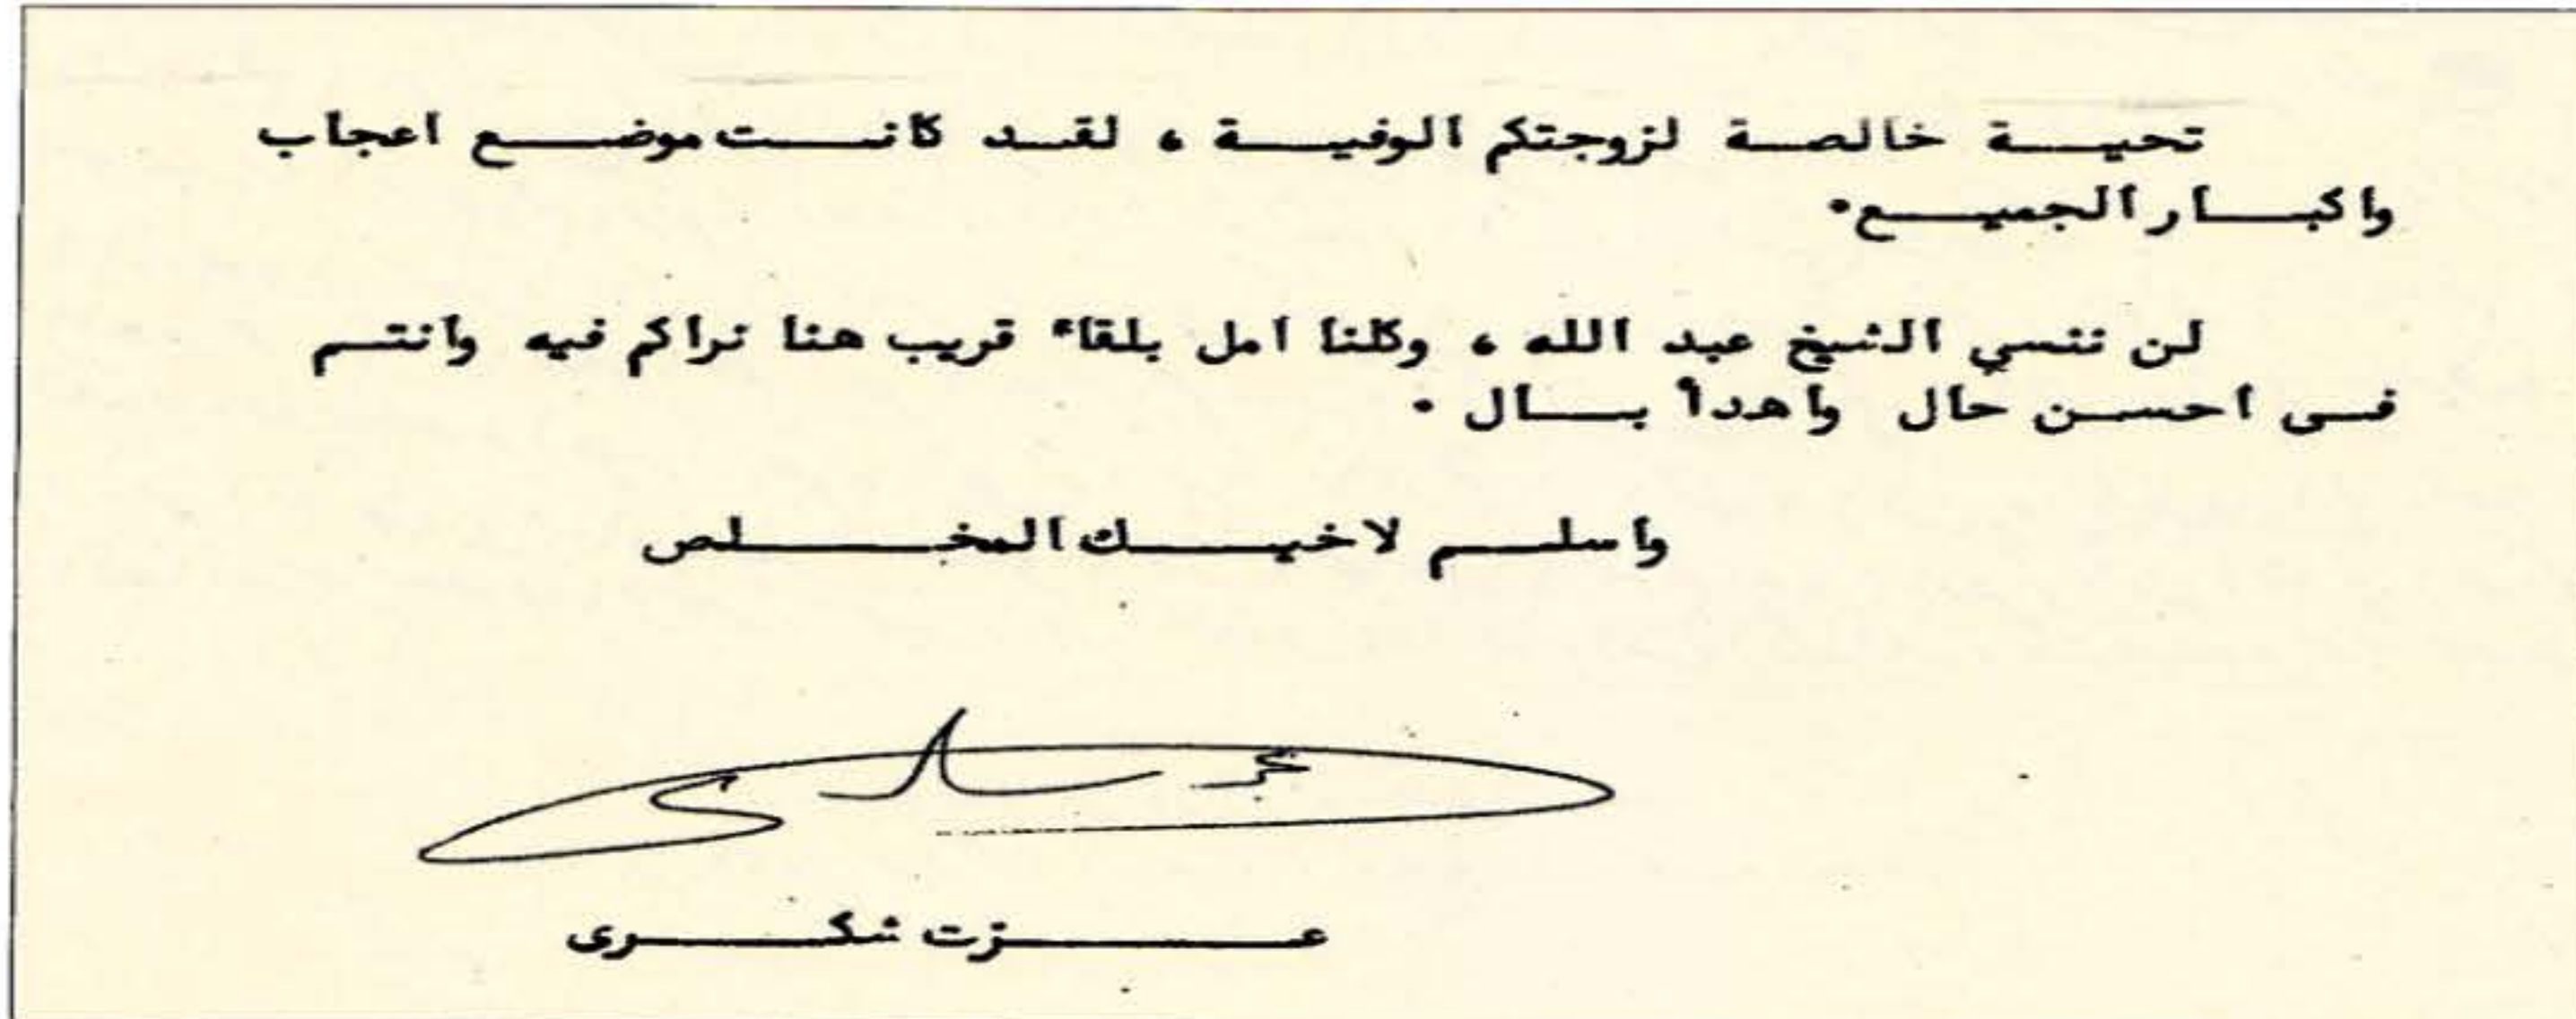 تحية خالصة لزوجتكم الوفية ، لقد كانت موضع اعجاب
واكبار الجميع .
لن ننسي الشيخ عبد الله ، وكلنا امل بلقاء قريب هنا نراكم فيه وانتم
فى احسن حال واهدأ بال .
واسلم لاخيك المخلص
عزت شكرى